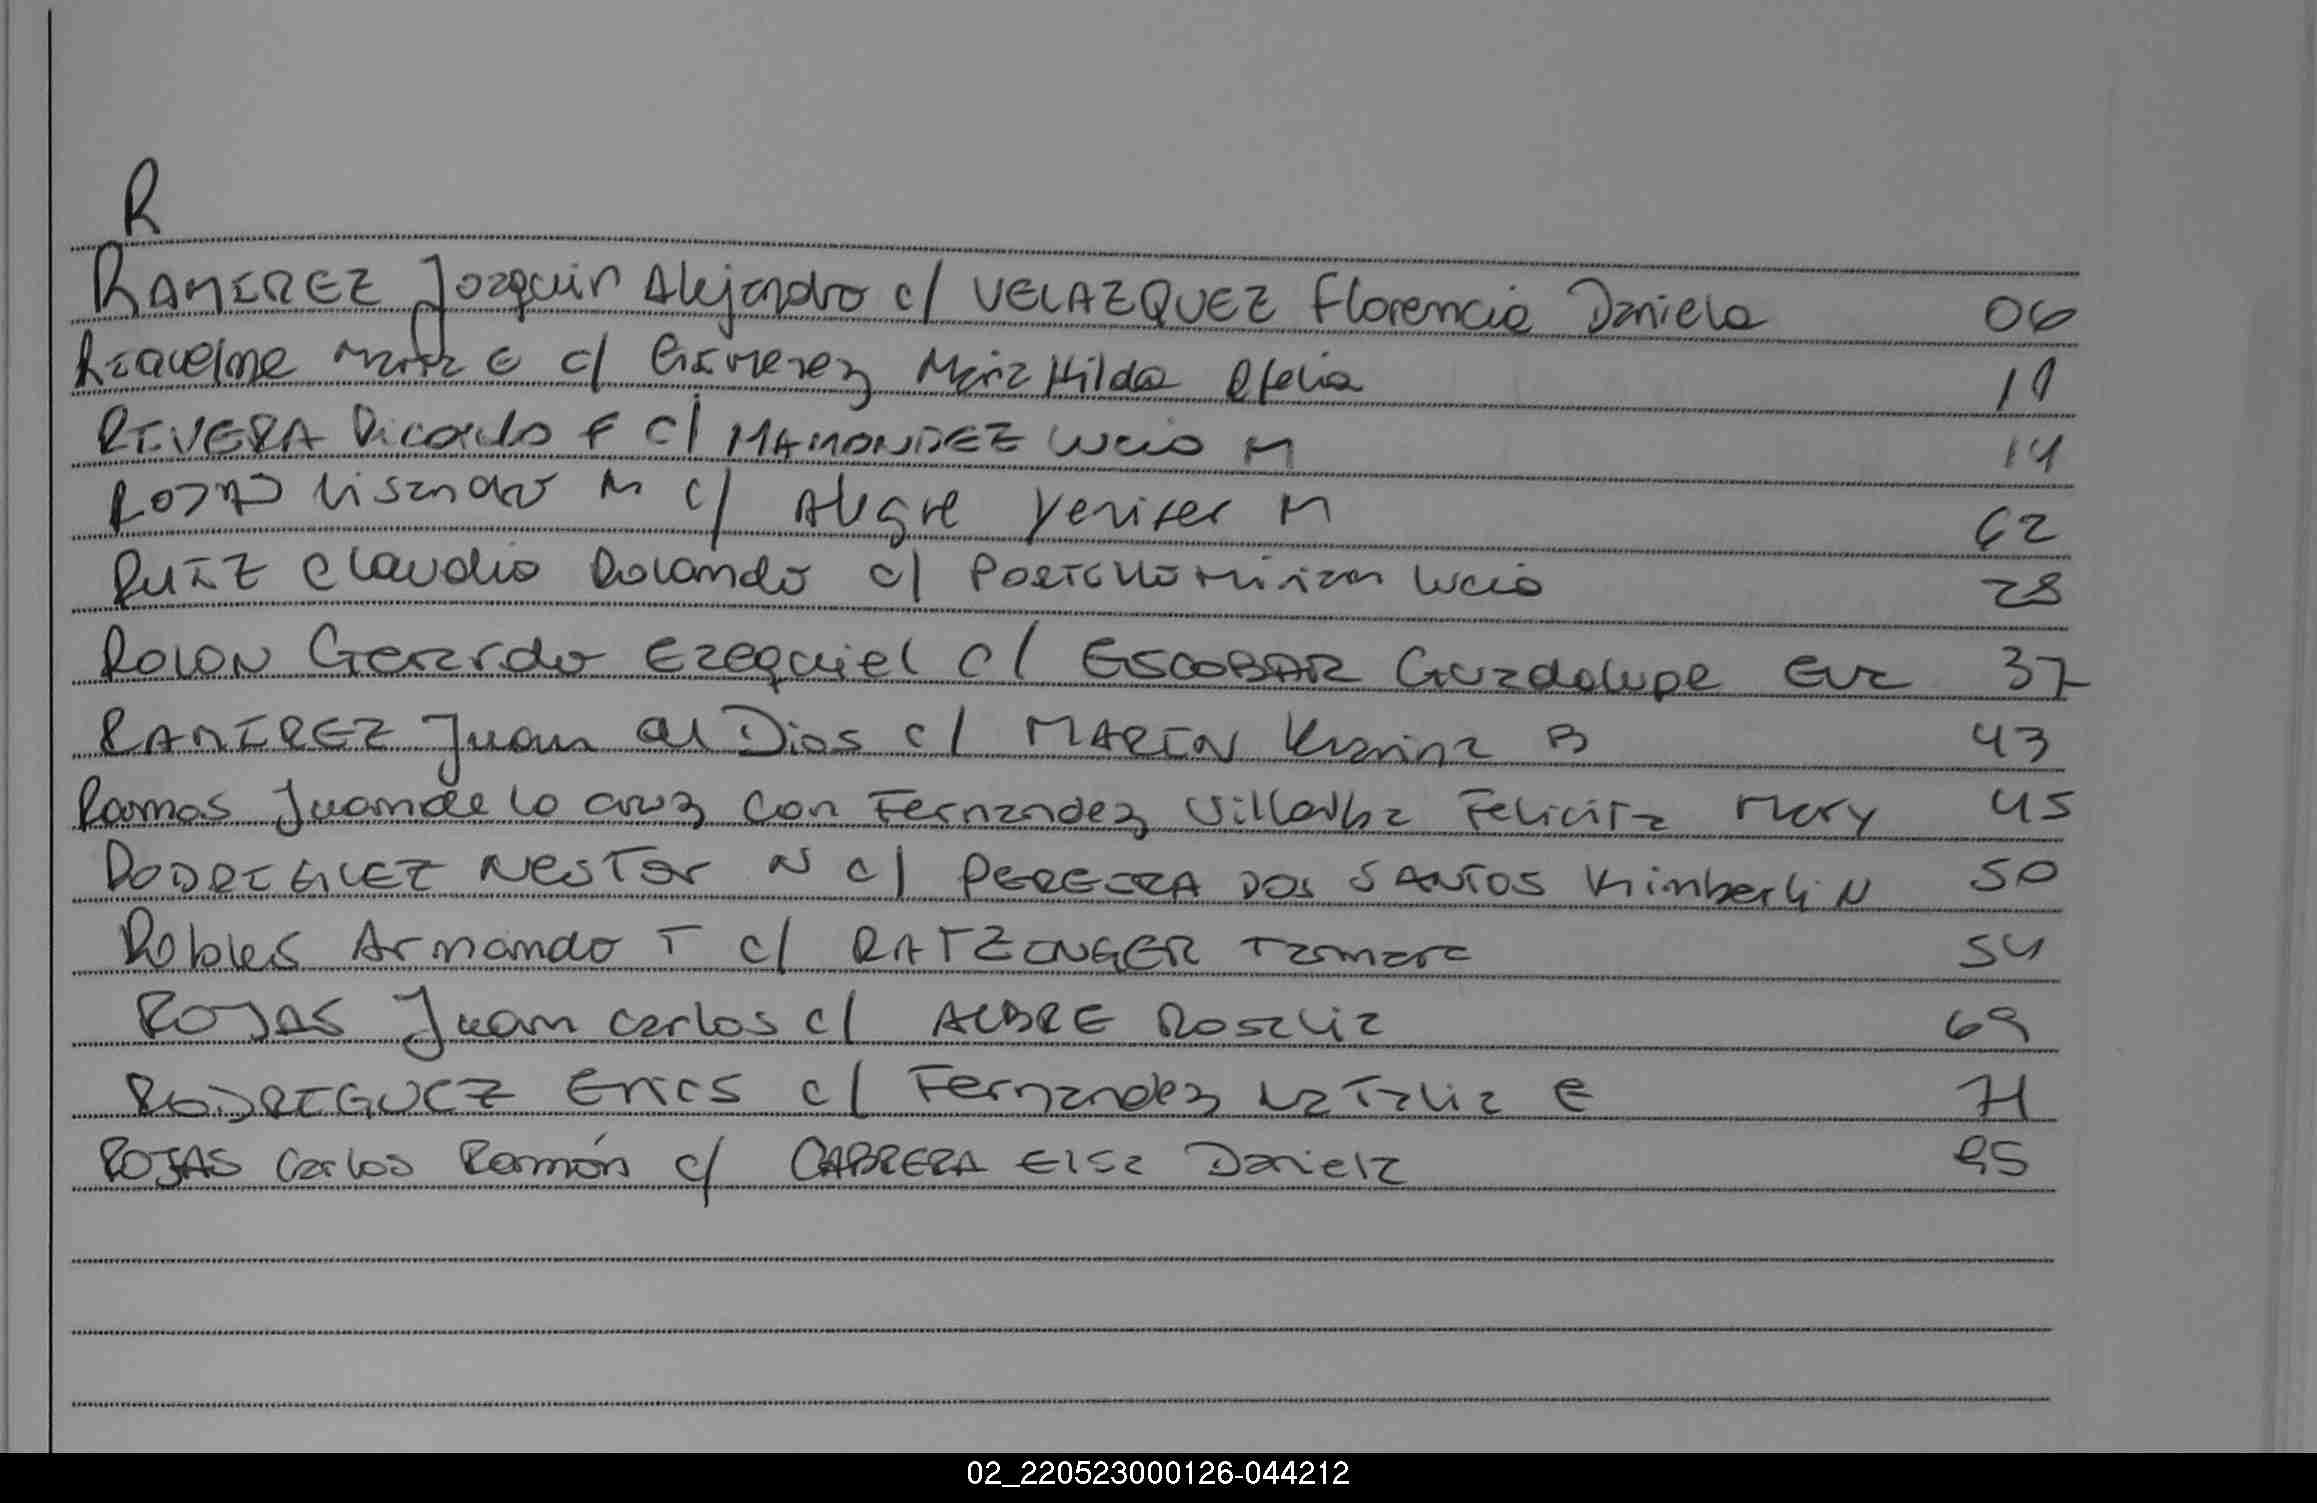 R
RAMIREZ Joaquin Alejandro c/ VELAZQUEZ Florencia Daniela 06
Riquelme E c/ Gimenez Maria Hilda Ofelia 11
RIVERA Ricardo F c/ MAMONDEZ Lucia M 14
ROJAS Lisandro M c/ Alegre Yenifer M 62
RUIZ Claudio Rolando c/ PORTILLO Mirian Lucia 28
ROLON Gerardo Ezequiel c/ ESCOBAR Guadalupe Eva 37
RAMIREZ Juan de Dios c/ MARIN Karina B 43
Ramos Juan de la cruz con Fernandez Villalba Felicita Mary 45
RODRIGUEZ Nestor N c/ PEREIRA DOS SANTOS Kimberli N 50
Robles Armando T c/ RATZINGER Tamara 54
ROJAS Juan carlos c/ ALBRE Rosalia 69
RODRIGUEZ c/ Fernandez Natalia E 71
ROJAS Carlos Ramón c/ CABRERA Elsa Daniela 95
02_220523000126-044212